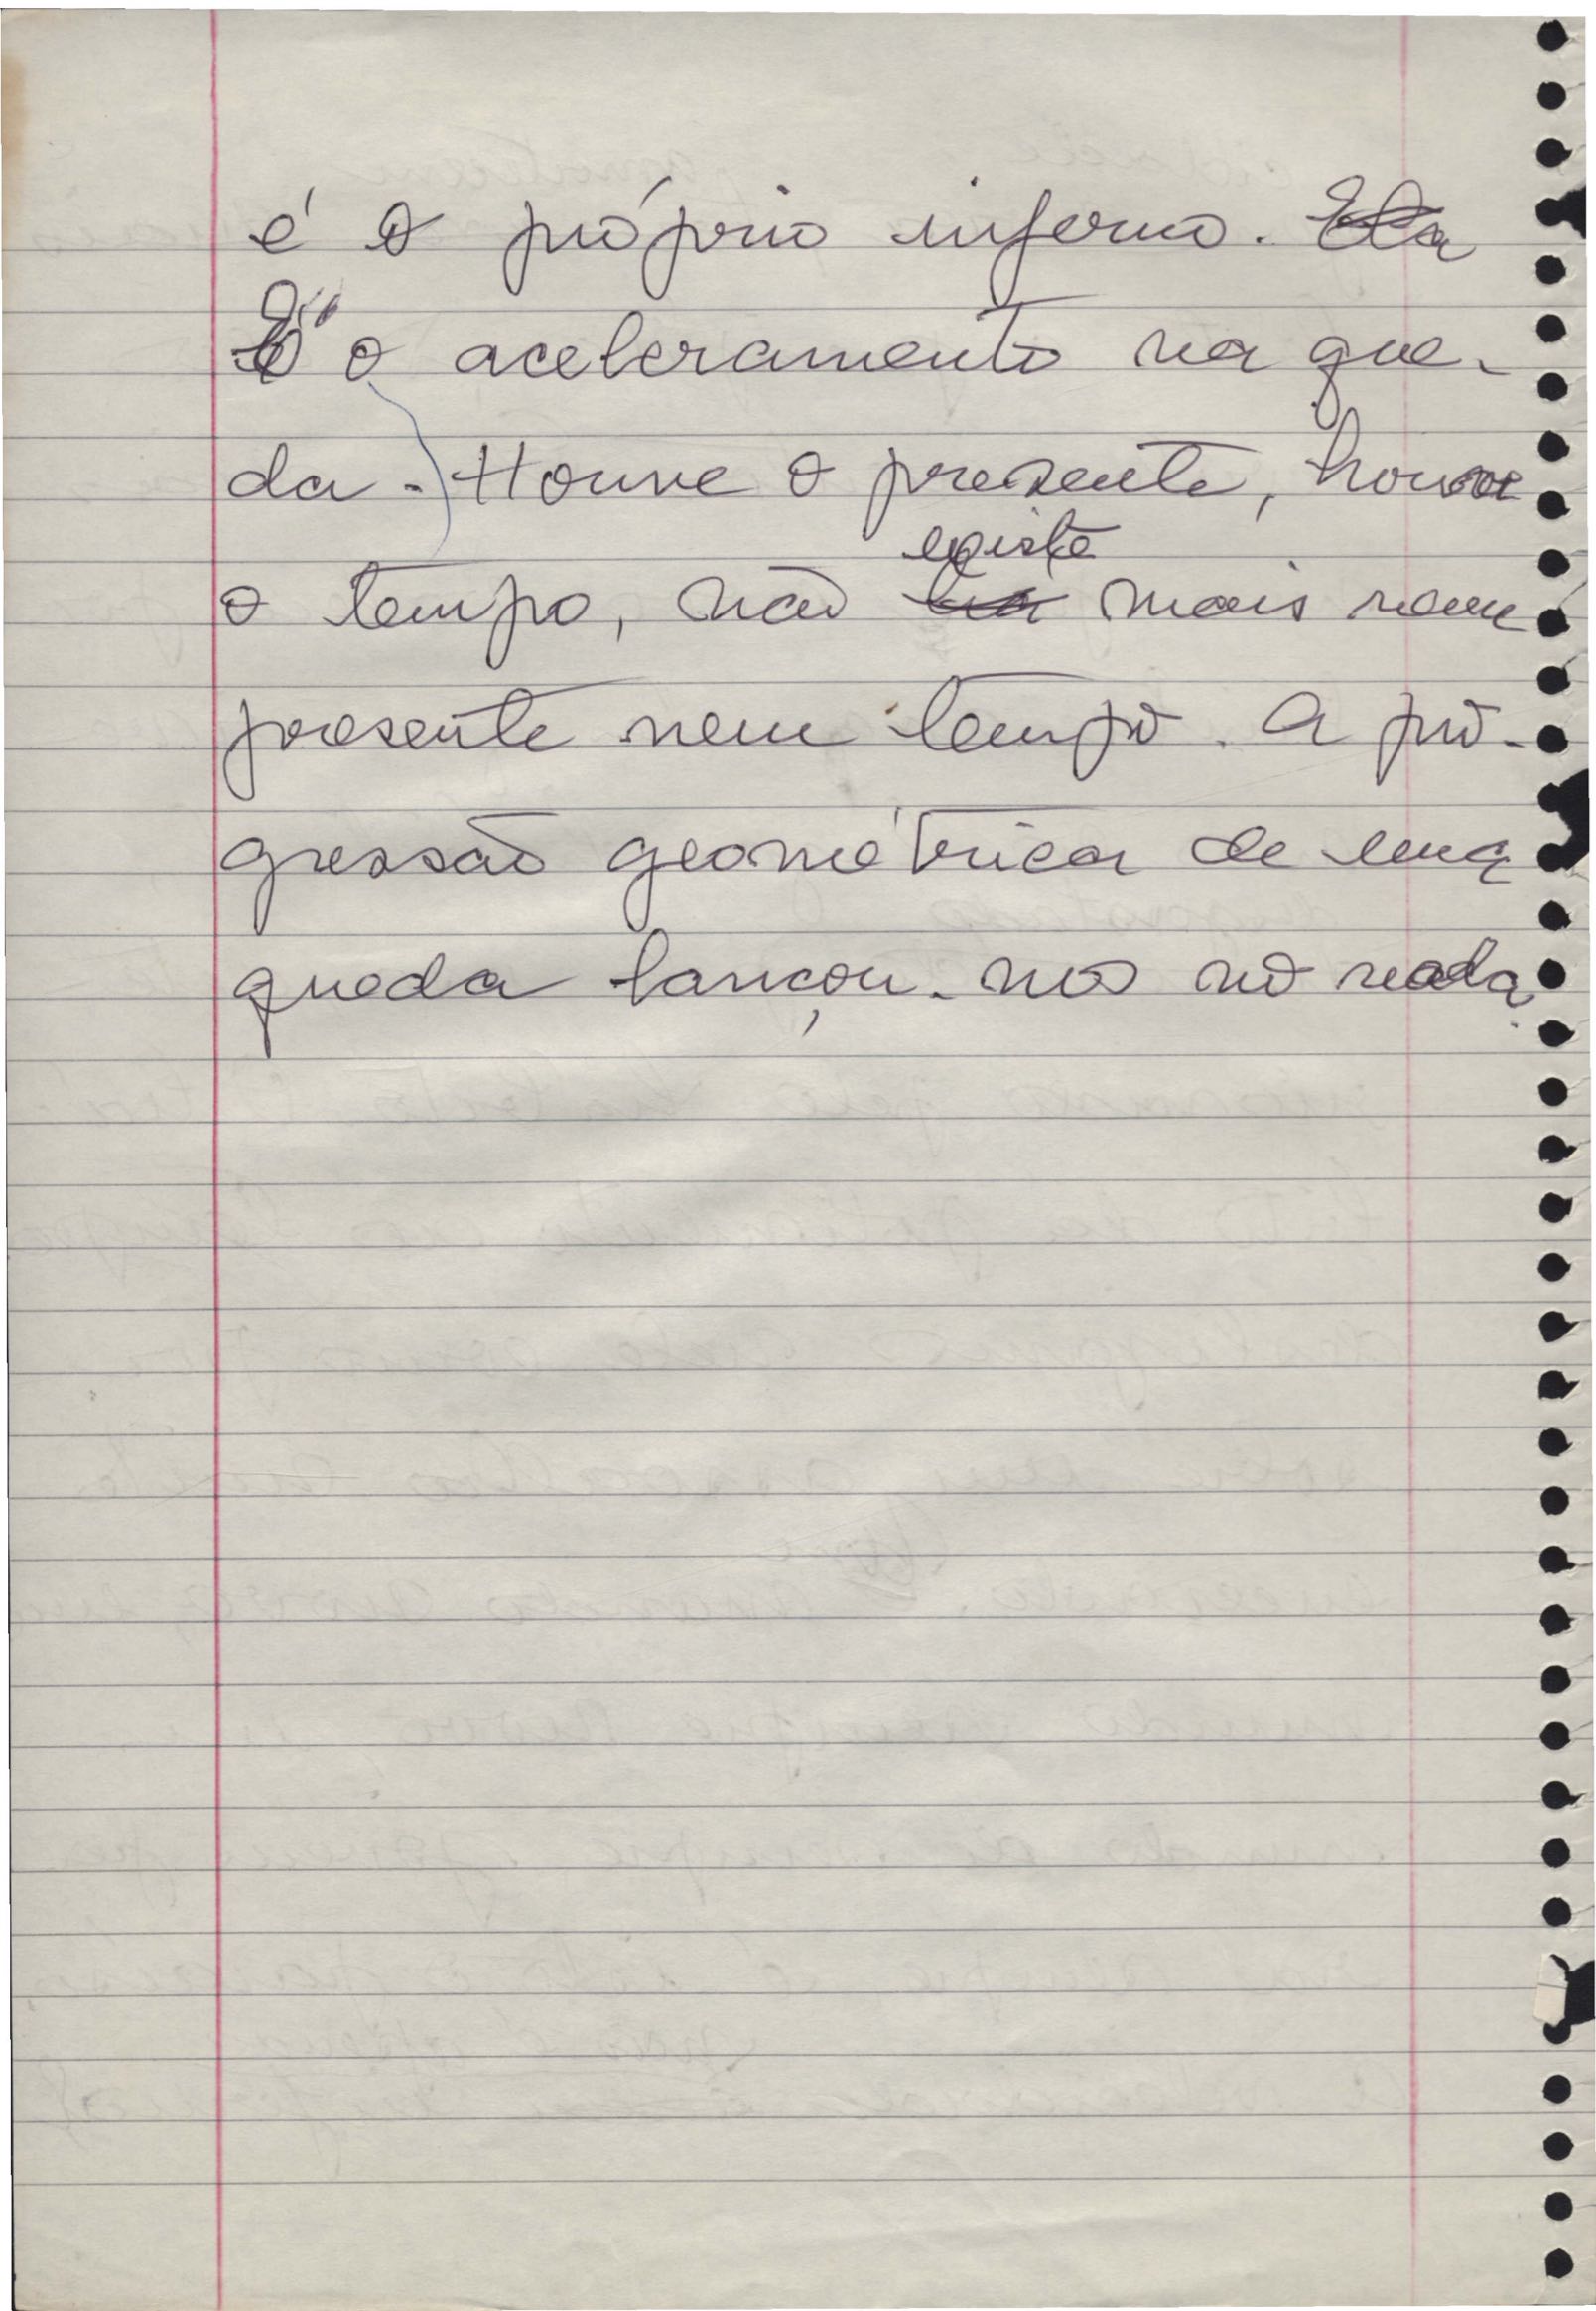 é o próprio inferno. Ela
É o aceleramento na que-
da. Houve o presente, houve
existe
o tempo, não há mais nem
presente nem tempo. A pro-
gressão geométrica de uma
queda lançou-nos no nada